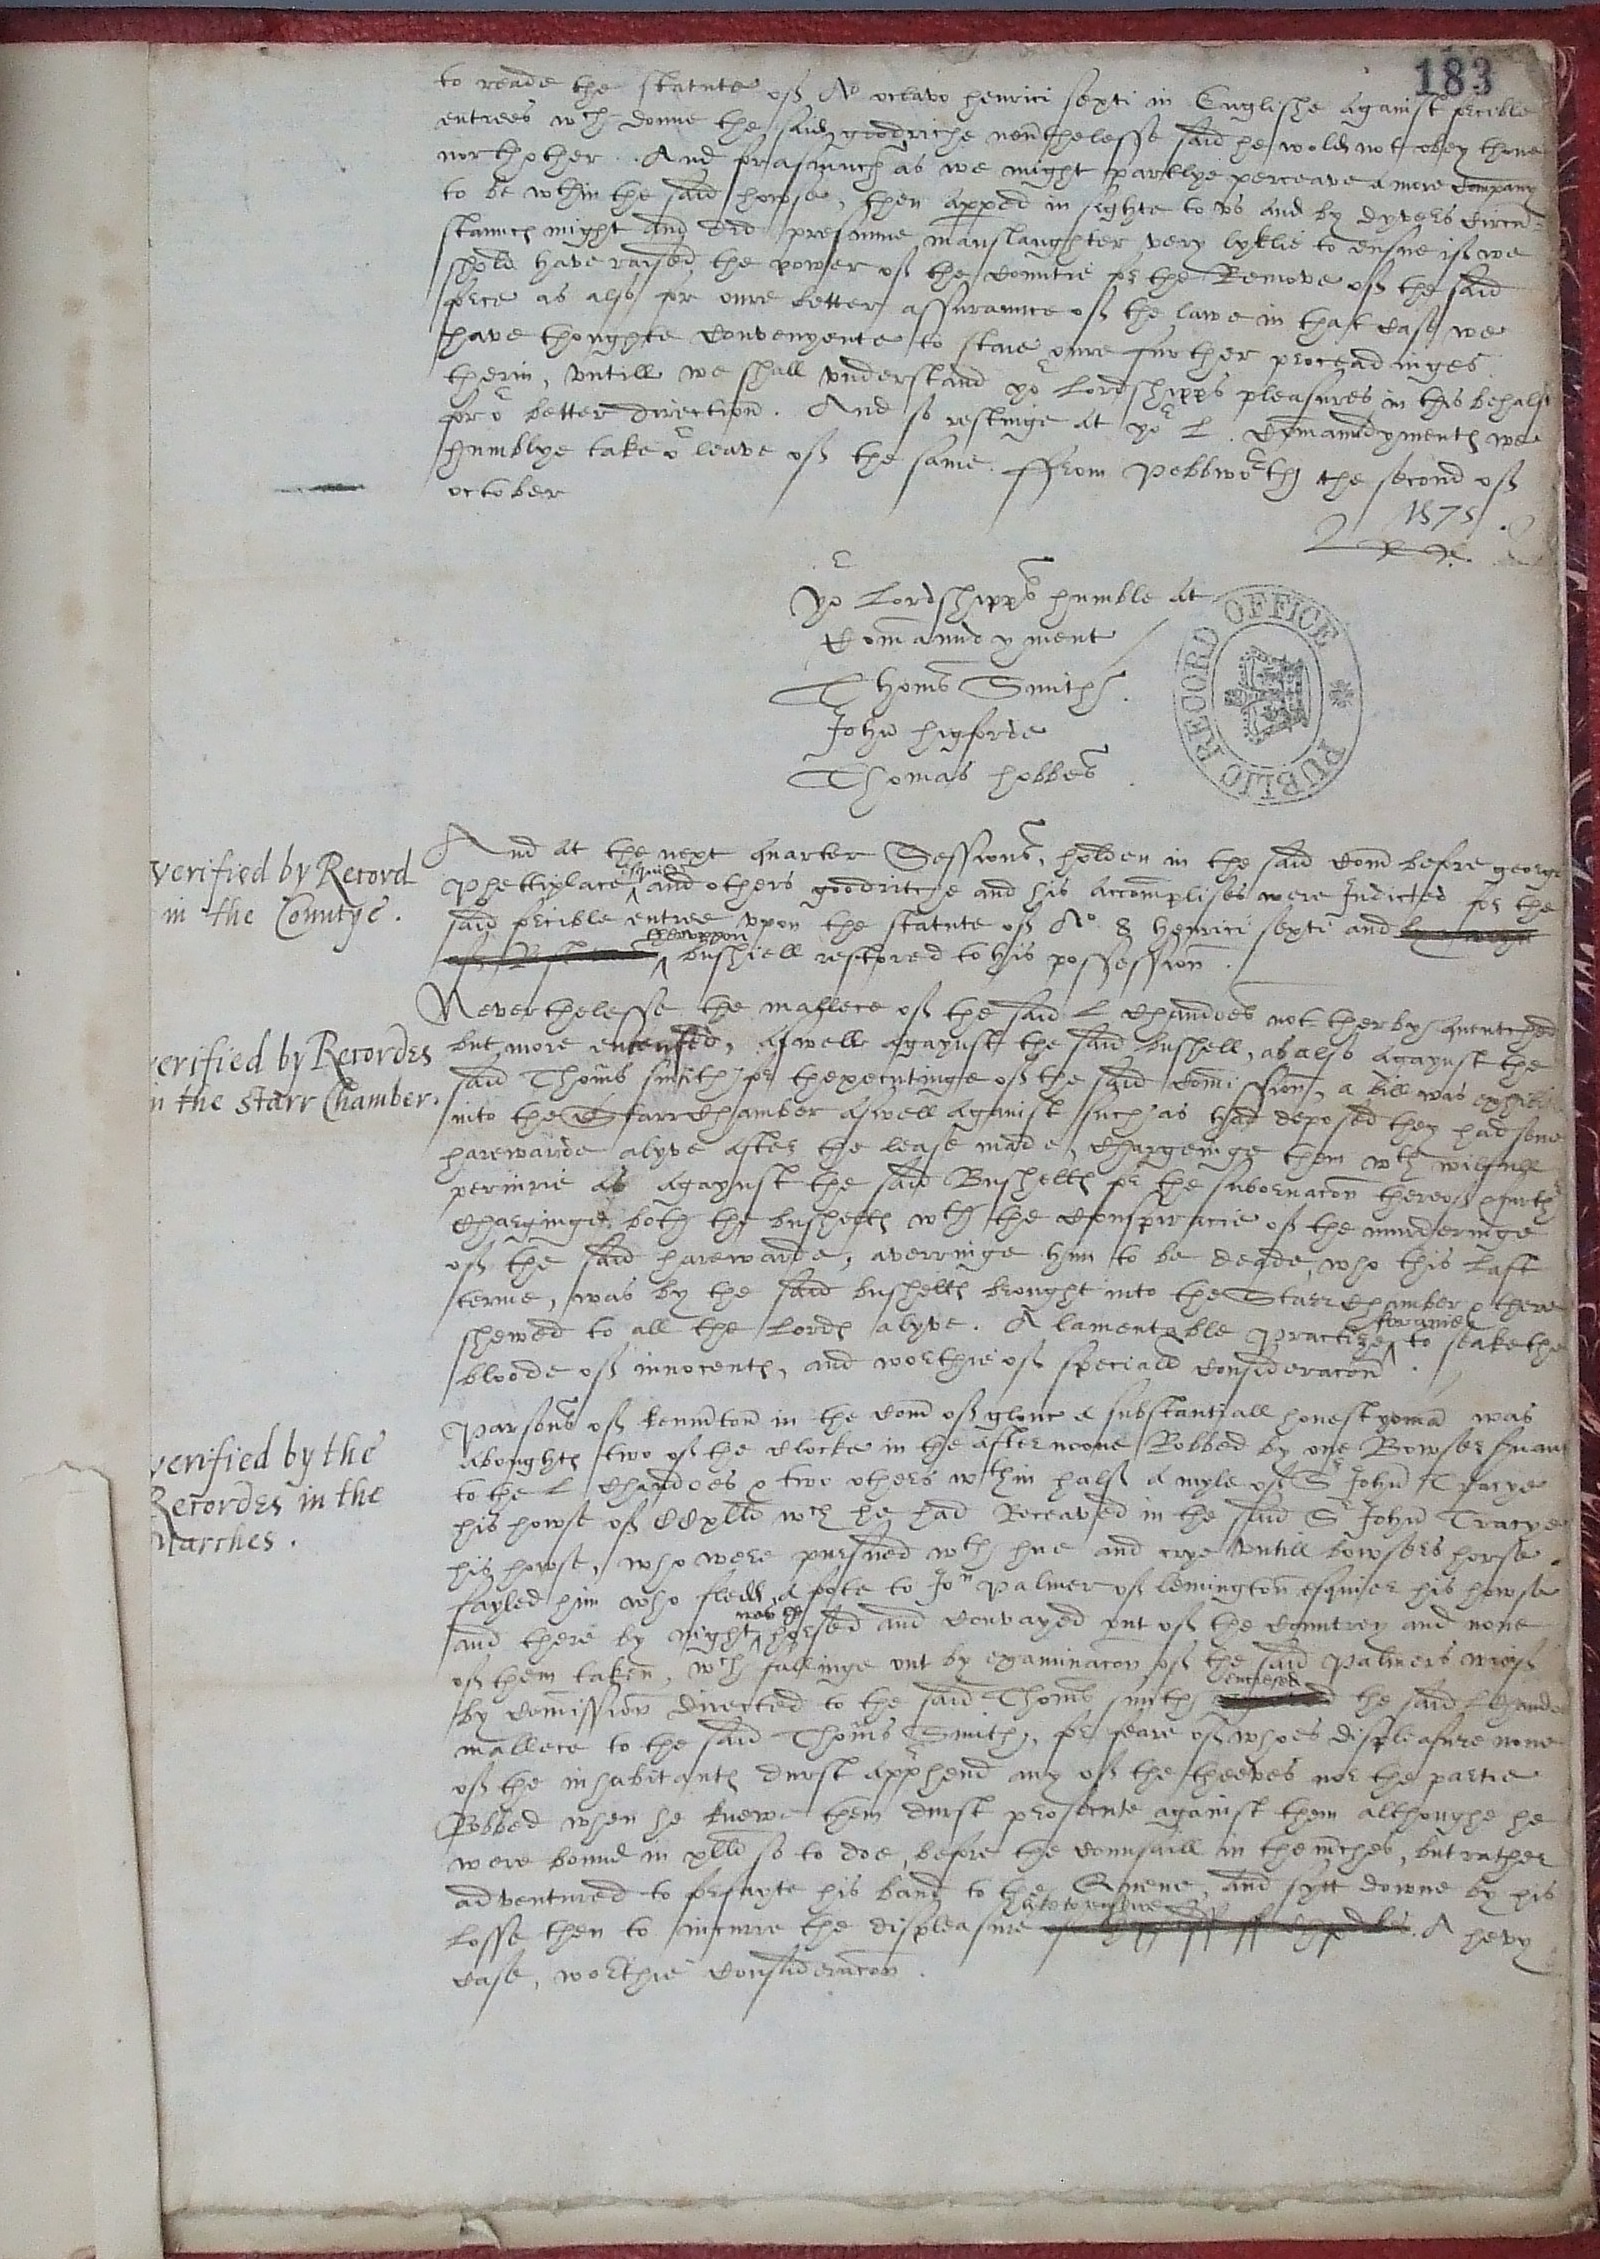 183
to reade the statute off Ao octavo henrici sexti in Englishe against forcible
entrees wch donne the said goodriche nevthelesse said he wold not obey thone
nor thother. And forasmuch as we might partlye perceave a more company
to be wthin the said howse, then apped in sighte to vs and by dyvers circu͂-
staunces might and did presume manslaughter very lyklie to ensue iff we
shold have raised the power off the countie for the Remove off the said
force as also for oure better assuraunce off the lawe in that case we
have thoughte convenyente to staie oure further proceadinges
therin, vntill we shall vnderstand yor Lordshipps pleasures in this behalf
for or better direction. And so restinge at yor L. Commaundyments we
humblye take or leave off the same. ffrom Pebbworth the second off
october
1575.
Yor Lordshipps humble at
Commaundyment
Thoms Smith.
John higforde
Thomas hobbes.
PUBLIC RECORD OFFICE
verified by Record
in the Countye.
And at the next quarter Sessions, holden in the said Com͂ before george
Phettiplace esquier and others goodritche and his accomplises were Indicted for the
said forcible entree vpon the statute off Ao 8 henrici sexti and
therevppon bushell restored to his possession.
verified by Recordes
in the starr Chamber.
Neverthelesse the mallece off the said L Chandoes not therby quentched
but more encensed, aswell agaynst the said bushell, as also agaynst the
said Thoms smith for thexecutinge off the said comission, a bill was exhibi
into the Starrchamber aswell against such as had deposed they had sene
harewarde alyve after the lease made, chargeinge them wth wilfull
periurie as agaynst the said Bushells for the subornacon thereoff
charginge both the bushells wth the conspiracie off the murderinge
off the said harewarde, averringe him to be deade, who this last
terme, was by the said bushells brought into the Starrchamber & there
shewed to all the Lords alyve. A lamentable practize to seake the
bloode off innocents, and worthie off speciall consideracon.
verified by the
Recordes in the
Marches.
Parsons off kemmton in the Com͂ off glouc a substantiall honest yoman was
aboughts two off the clocke in the afternoone Robbed by one Bowser svant
to the L Chandoes & two others wthin half a myle off Sr John Tracye
his howse off wch he had Receaved in the said Sr John Tracye
his howse, who were pursued wth hue and crye vntill bowsers horse
fayled him who fledd a fote to Jon palmer off lemington esquier his howse
and there by night was he horsed and convayed out off the Countrey and none
off them taken, wch fallinge out by examinacon off the said palmers wieff
by comission directed to the said Thoms smith encresed the said L Chandoes
mallece to the said Thoms Smith, for feare off whoes displeasure none
off the inhabitants durst apphend any off the theeves nor the partie
Robbed when he knewe them durst prosecute against them althoughe he
were bound in xlli so to doe, before the counsaill in the mches, but rather
adventured to forfayte his band to the Quene, and sytt downe by his
losse then to incurre the displeasure. A hevy
case, worthie consideracon.